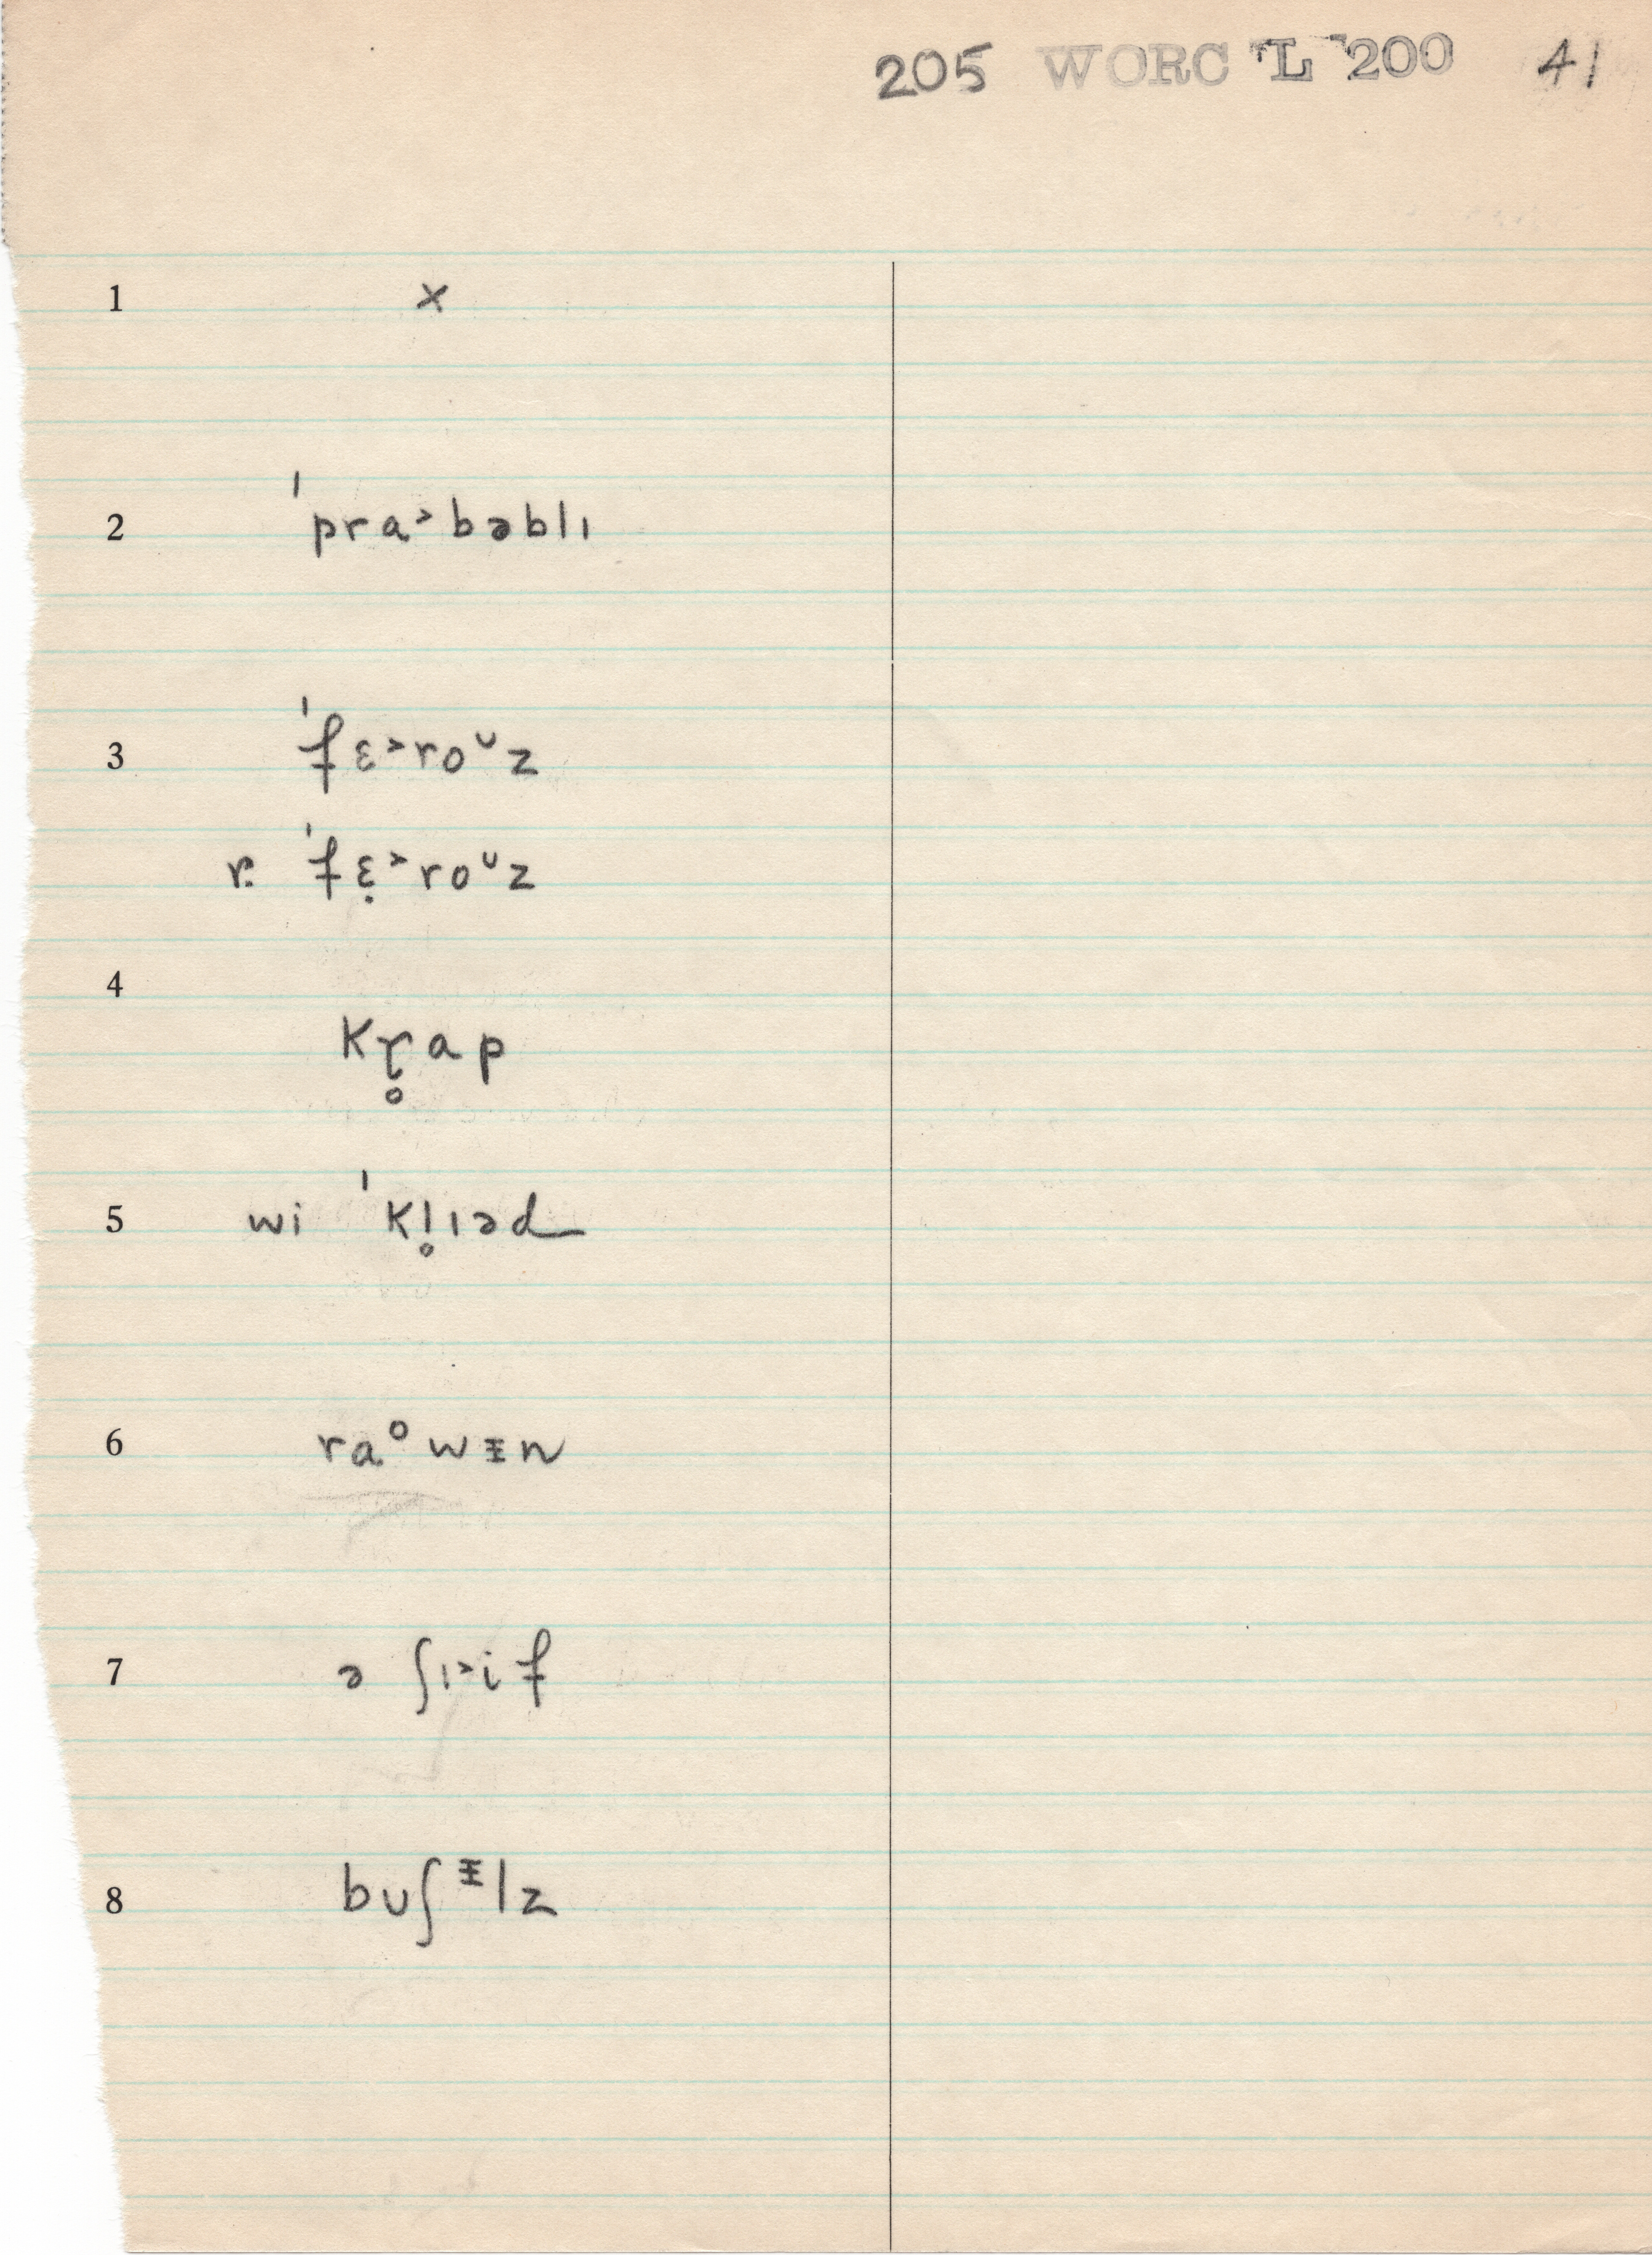 205 WORC L 200 41
1 x
2 ˈpra˃bəblɪ
3 ˈfɛ˃roᶷz
r. ˈfɛ̣˃roᶷz
4 kɽ̊ap
5 wi ˈkl̥ɪəd
6 ra°wᵻn
7 ə ʃɪ˃if
8 bʊʃᵻlz